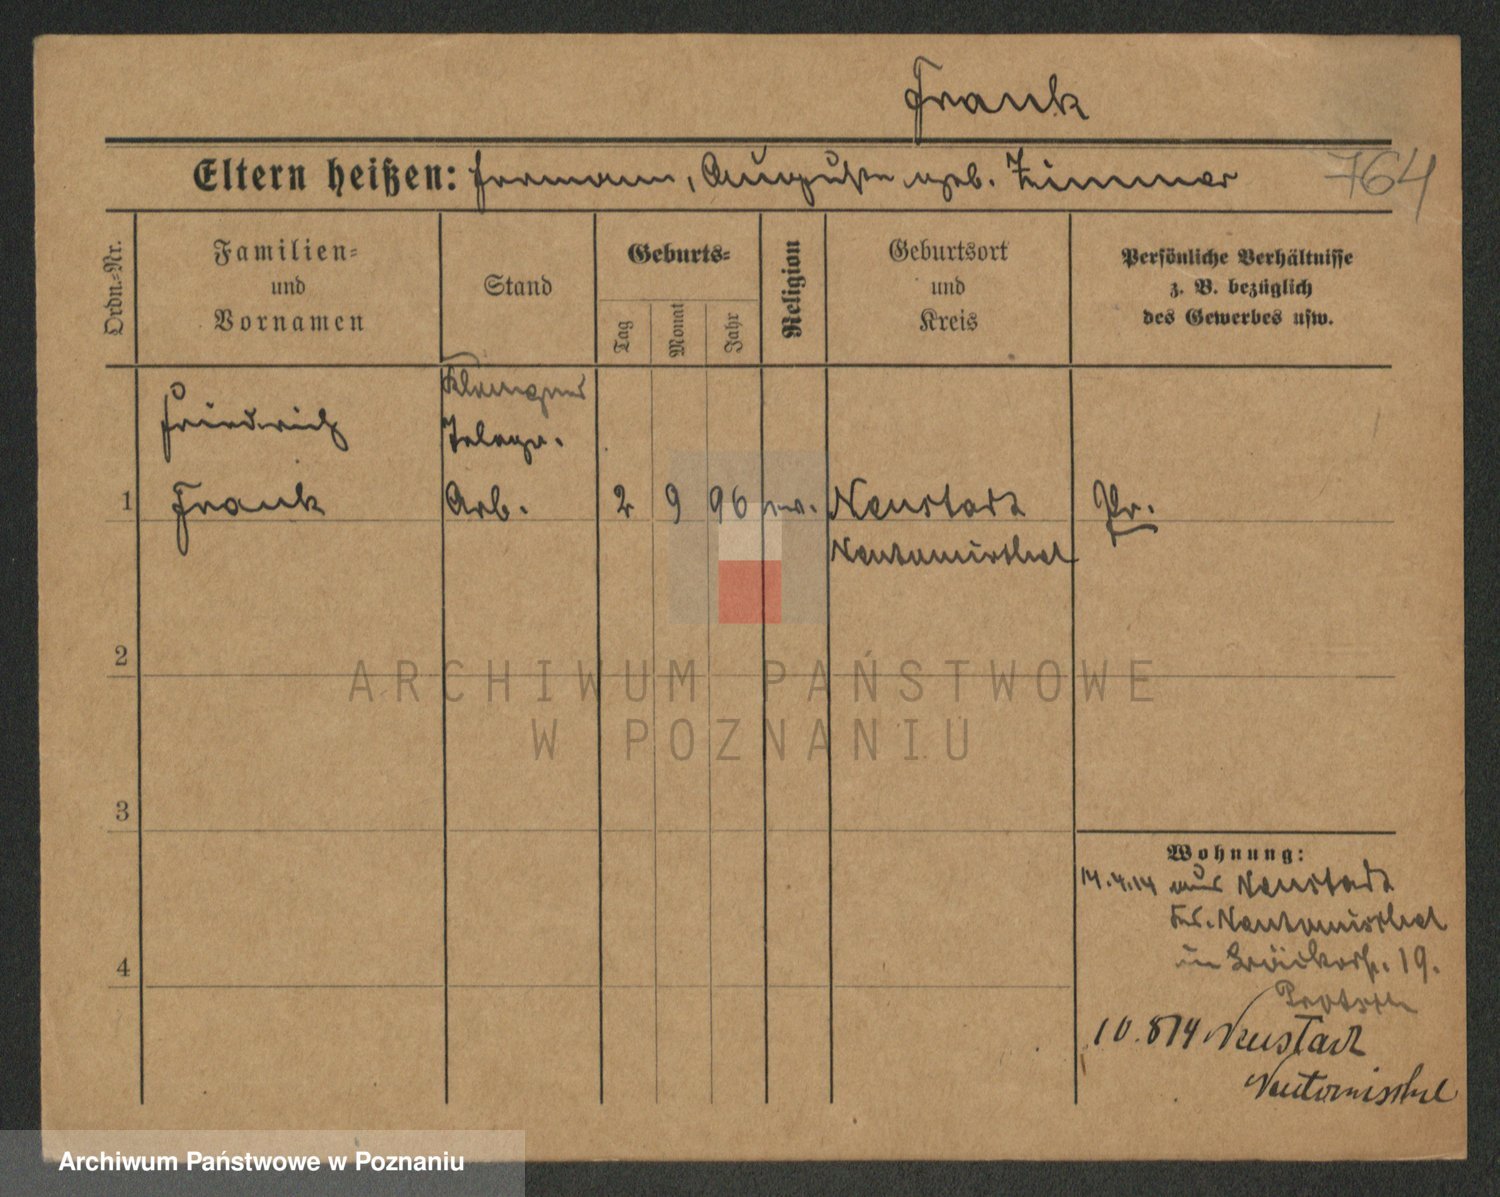 Frank
Eltern heißen: Hermann, Auguste geb. Zimmer
764
Ordn.-Nr.
Familien-
und
Vornamen
Stand
Geburts-
Tag
Monat
Jahr
Religion
Geburtsort
und
Kreis
Persönliche Verhältnisse
z. B. bezüglich
des Gewerbes usw.
Friedrich
Telegr.
1 Frank Arb. 2 9 96 ev. Neustadt Pr.
Neutomischel
2
3
4
Wohnung:
14.4.14 aus Neustadt
Kr. Neutomischel
19.
10.8 14 Neustadt
Neutomischel
ARCHIWUM PAŃSTWOWE
W POZNANIU
Archiwum Państwowe w Poznaniu